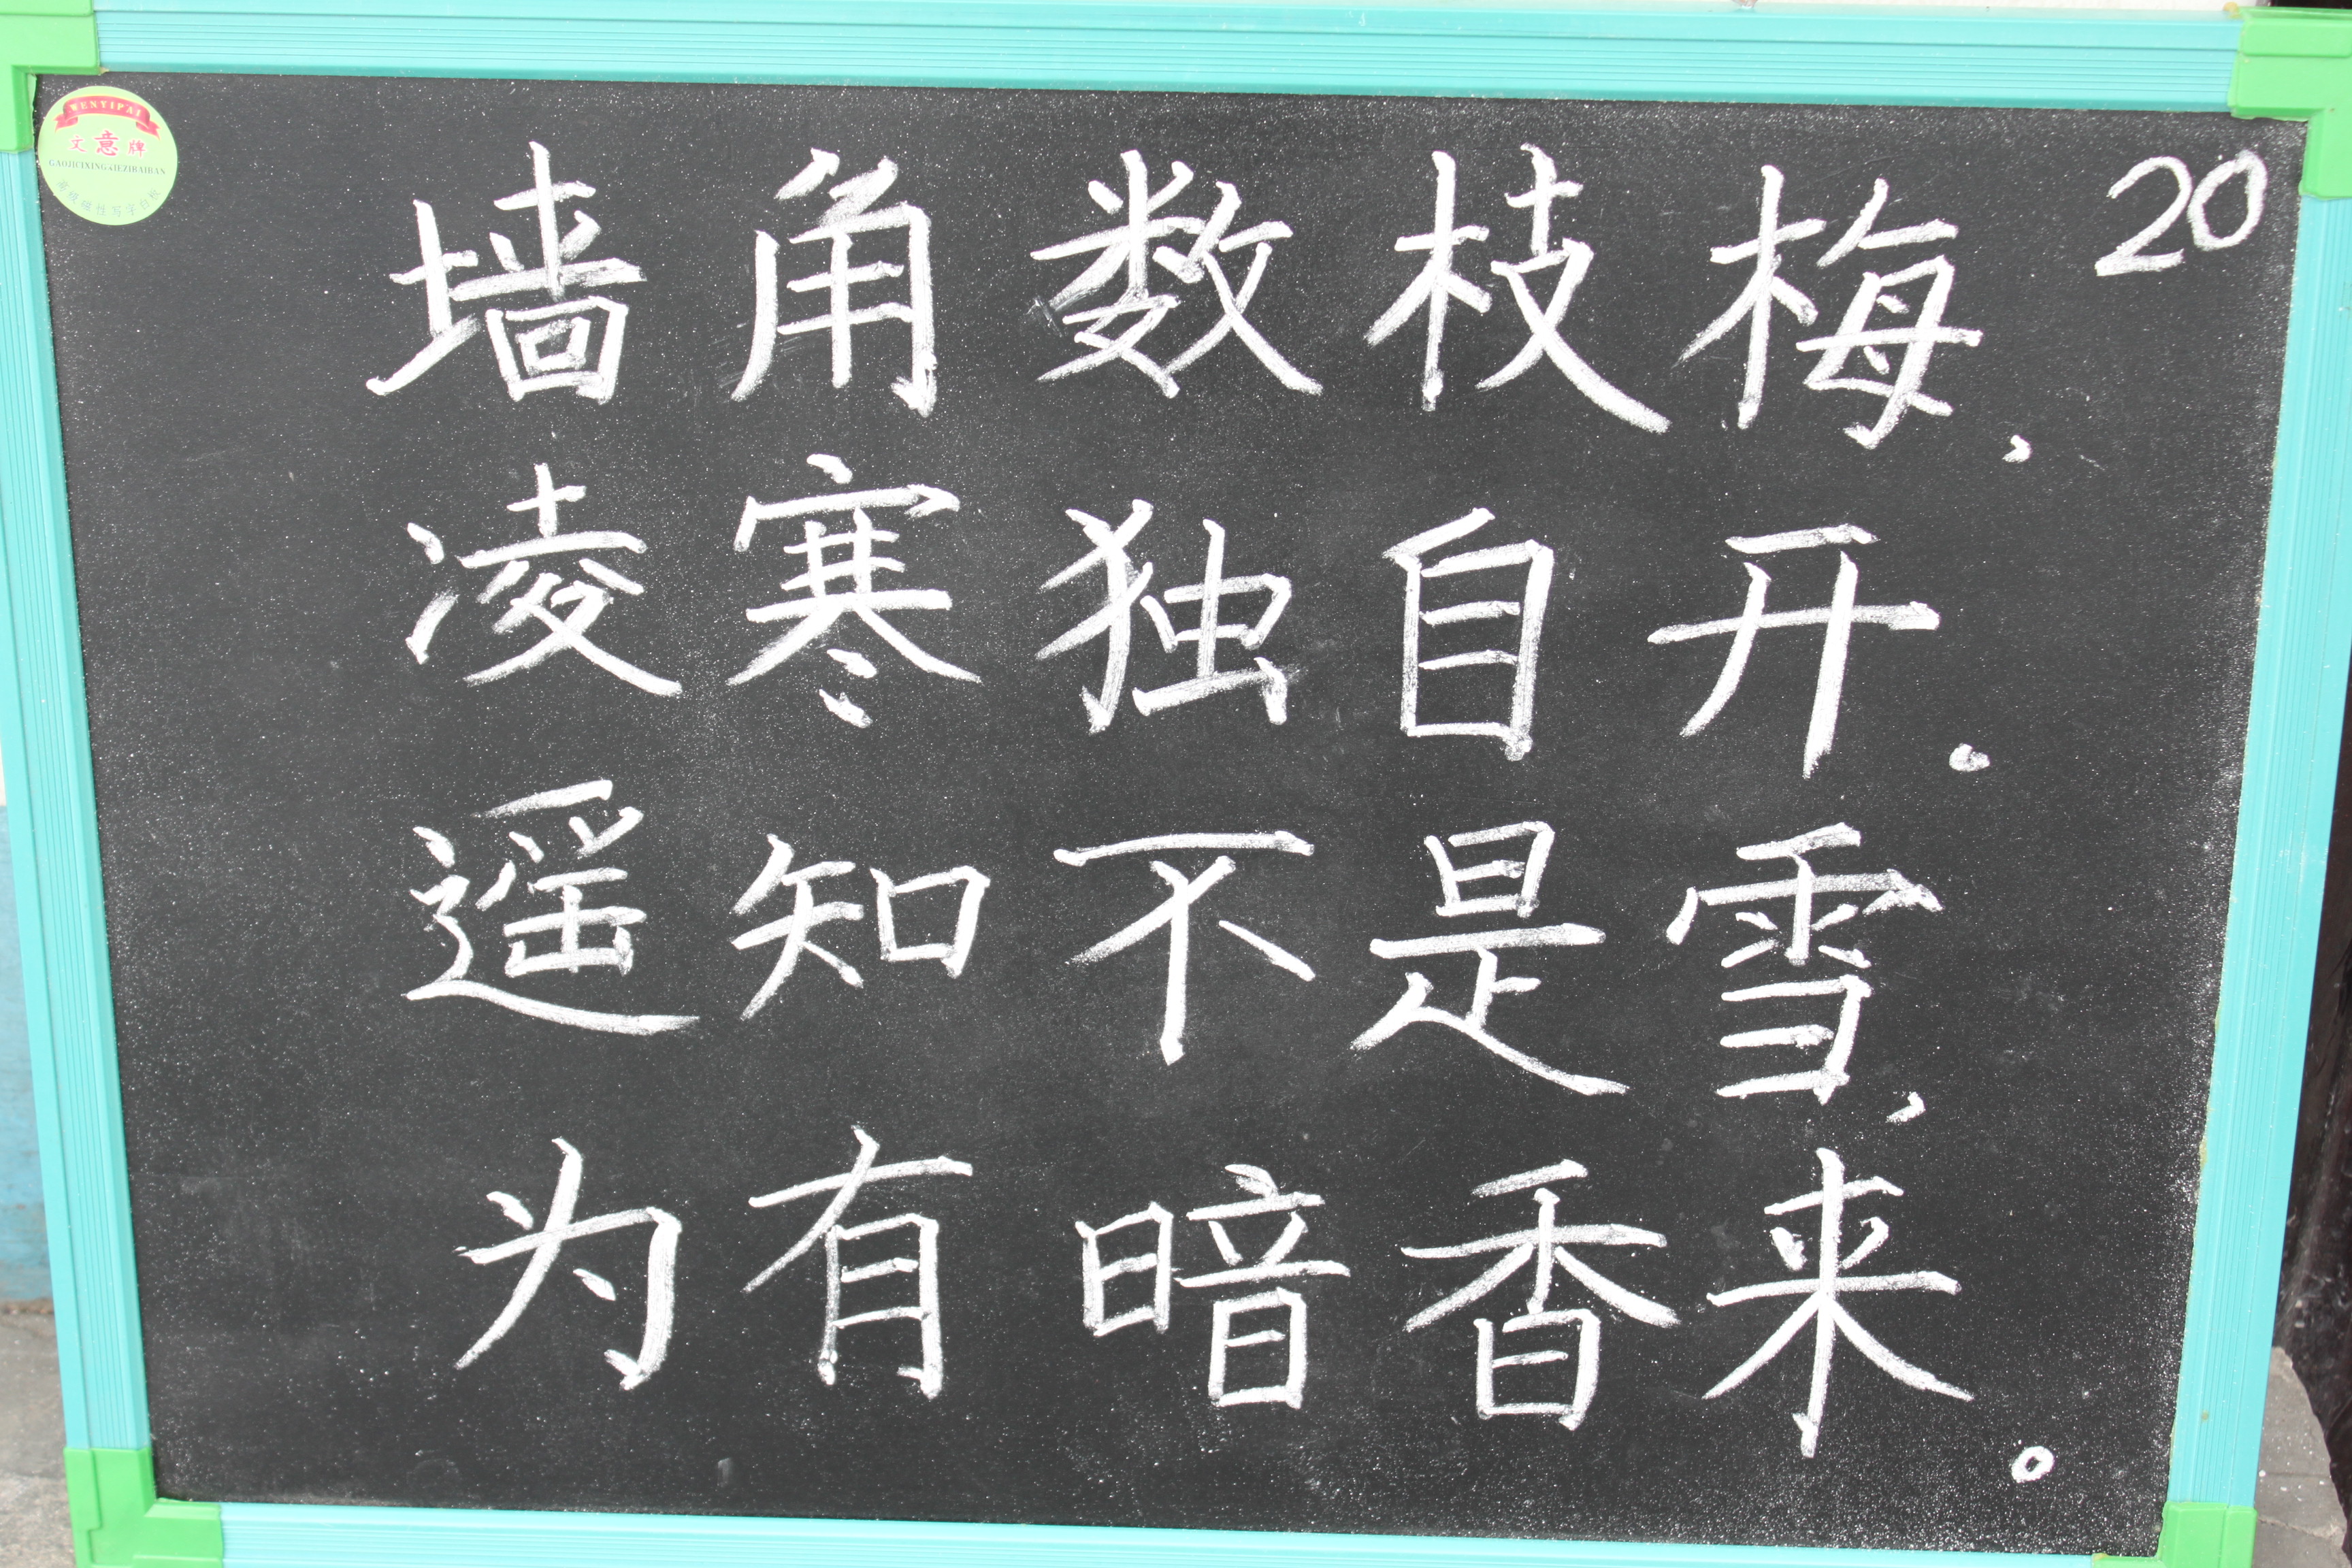 WENYIPAI
文意牌
GAOJICIXINGXIEZIBAIBAN
高级磁性写字白板
20
墙角数枝梅，
凌寒独自开。
遥知不是雪，
为有暗香来。